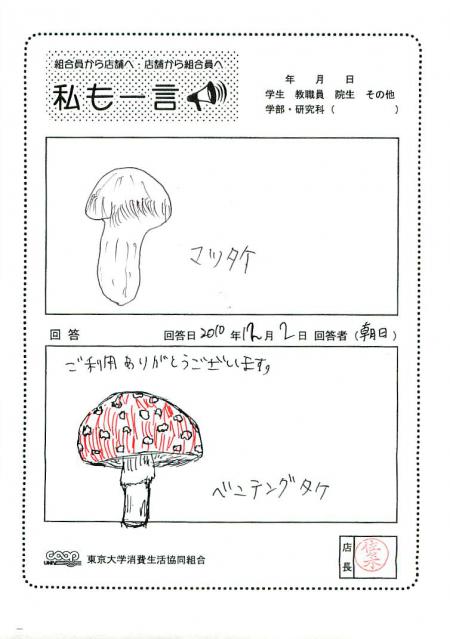 組合員から店舗へ・店舗から組合員へ
私も一言
年 月 日
学生 教職員 院生 その他
学部・研究科( )
マツタケ
回答 回答日 2010 年 12 月 2 日 回答者 (朝日)
ご利用ありがとうございます。
ベニテングタケ
COOP
UNIV
東京大学消費生活協同組合
店長